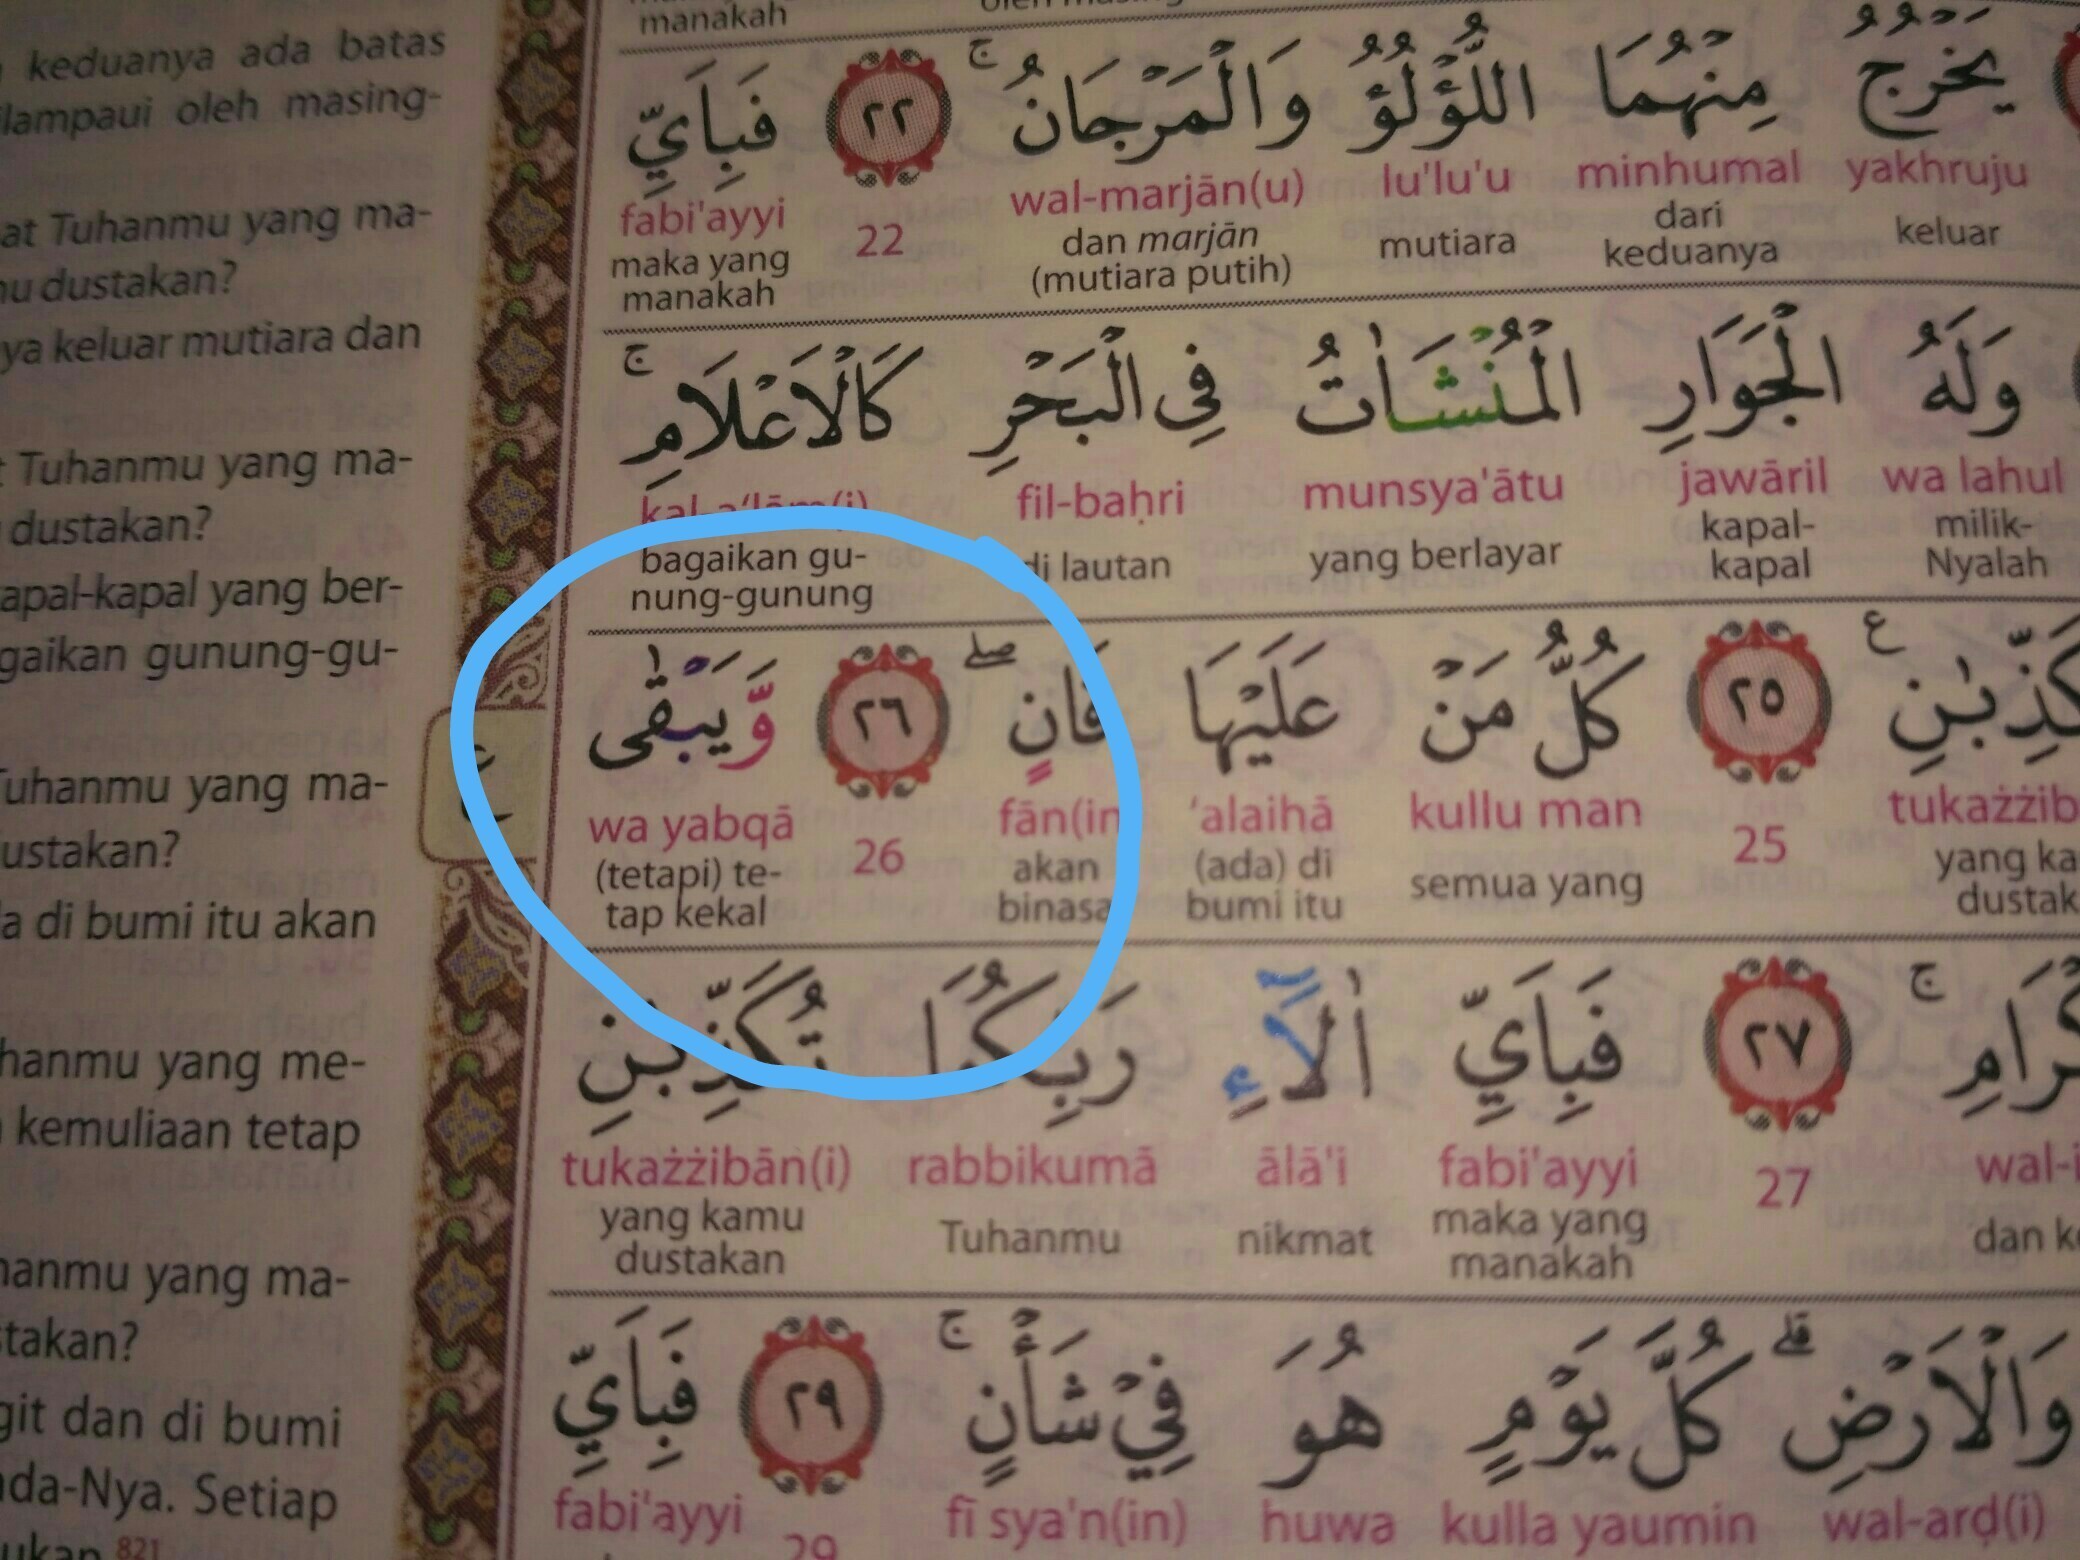 keduanya ada batas
oleh masing-
at Tuhanmu yang ma-
dustakan?
ya keluar mutiara dan
Tuhanmu yang ma-
dustakan?
apal-kapal yang ber-
gaikan gunung-gu-
Tuhanmu yang ma-
ustakan?
a di bumi itu akan
hanmu yang me-
kemuliaan tetap
hanmu yang ma-
stakan?
git dan di bumi
da-Nya. Setiap
821
manakah
يَخْرُجُ مِنْهُمَا اللُّؤْلُؤُ وَالْمَرْجَانُ ۚ ٢٢ فَبِاَيِّ
fabi'ayyi 22 wal-marjān(u) lu'lu'u minhumal yakhruju
maka yang manakah
dan marjān (mutiara putih)
mutiara
dari keduanya
keluar
وَلَهُ الْجَوَارِ الْمُنْشَاٰتُ فِى الْبَحْرِ كَالْاَعْلَامِ ۚ
kal-a‘lām(i) fil-baḥri munsya'ātu jawāril wa lahul
bagaikan gu-nung-gunung
di lautan
yang berlayar
kapal-kapal
milik-Nyalah
٢٥ كُلُّ مَنْ عَلَيْهَا فَانٍ ۖ ٢٦ وَّيَبْقٰى
wa yabqā 26 fān(in ‘alaihā kullu man 25 tukażżib
(tetapi) te-tap kekal
akan binasa
(ada) di bumi itu
semua yang
yang ka
dustak
٢٧ فَبِاَيِّ اٰلَاۤءِ رَبِّكُمَا تُكَذِّبٰنِ
tukażżibān(i) rabbikumā ālā'i fabi'ayyi 27 wal-i
yang kamu dustakan
Tuhanmu
nikmat
maka yang manakah
dan
وَالْاَرْضِ ۗ كُلَّ يَوْمٍ هُوَ فِيْ شَأْنٍ ۚ ٢٩ فَبِاَيِّ
fabi'ayyi 29 fī sya'n(in) huwa kulla yaumin wal-arḍ(i)